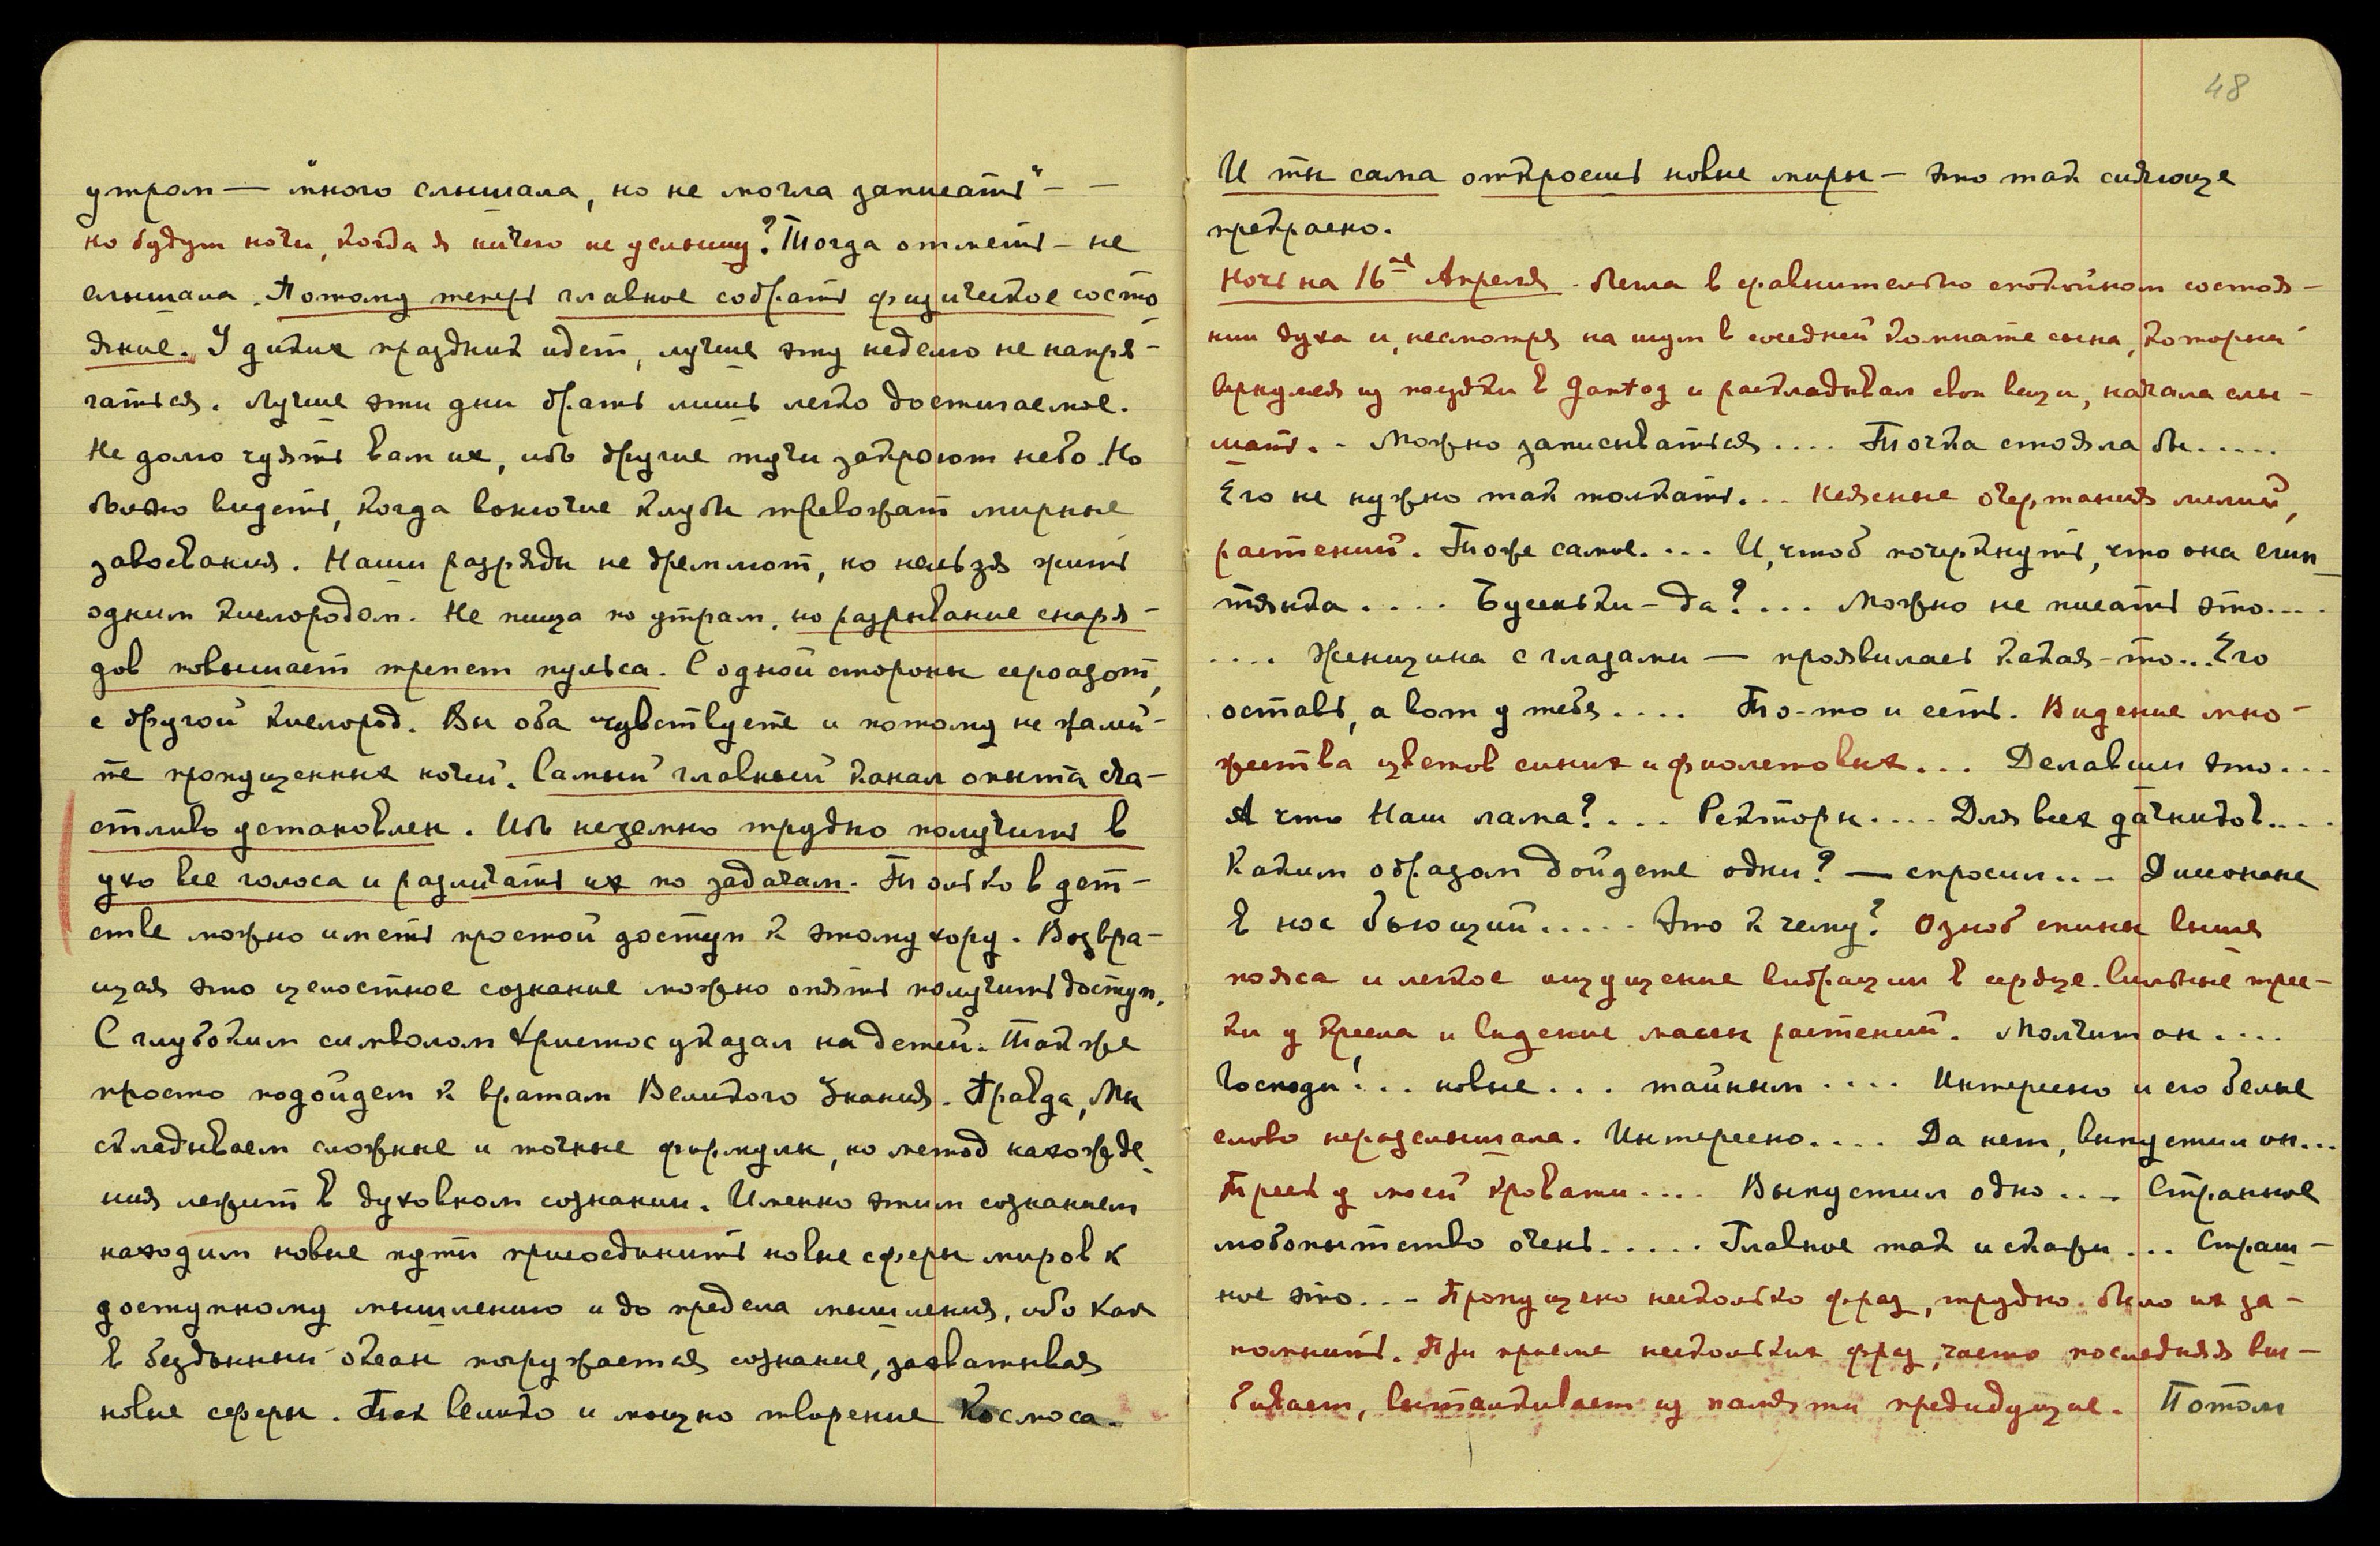 утром — "много слышала, но не могла записать" — —
но будут ночи, когда я ничего не услышу? Тогда отметь — не
слышала. Потому теперь главное собрать физическое состо
яние. У диких праздник идет, лучше эту неделю не напря-
гаться. Лучше эти дни брать лишь легко достигаемое.
Не долго чуять вам их, ибо другие тучи закроют небо. Но
больно видеть, когда вонючие клубы тревожат мирные
завоевания. Наши разряды не дремлют, но нельзя жить
одним кислородом. Не пища по утрам, но разрывание снаря-
дов повышает трепет пульса. С одной стороны сероазот,
с другой кислород. Вы оба чувствуете и потому не жалей-
те пропущенных ночей. Самый главный канал опыта сча-
стливо установлен. Ибо неземно трудно получить в
ухо все голоса и различать их по задачам. Только в дет-
стве можно иметь простой доступ к этому хору. Возвра-
щая это целостное сознание можно опять получить доступ.
С глубоким символом Христос указал на детей. Так же
просто подойдем к вратам Великого Знания. Правда, Мы
складываем сложные и точные формулы, но метод нахожде
ния лежит в духовном сознании. Именно этим сознанием
находим новые пути присоединить новые сферы миров к
доступному мышлению и до предела мышления, ибо как
в бездонный океан погружается сознание, захватывая
новые сферы. Так велико и мощно творение Космоса.
48
И ты сама откроешь новые миры — это так сияюще
прекрасно.
Ночь на 16ое Апреля. Легла в сравнительно спокойном состоя-
нии духа и, несмотря на шум в соседней комнате сына, который
вернулся из поездки в Gantog и раскладывал свои вещи, начала слы-
шать. - Можно записываться .... Точка стояла бы.....
Его не нужно так толкать... Неясные очертания лилий,
растений. Тоже самое.... И, чтоб почеркнуть, что она егип
тянка .... Бусеньки - да? ... Можно не писать это....
.... Женщина с глазами — проявилась какая-то... Его
оставь, а вот у тебя .... То-то и есть. Видение мно-
жества цветов синих и фиолетовых... Делавши это...
А что Наш лама? ... Ректоры.... Для всех дачников....
Каким образом дойдете одни? — спросил... Дисонанс
В нос бьющий..... Это к чему? Озноб спины выше
пояса и легкое ощущение вибрации в сердце. Сильные трес-
ки у кресла и видение массы растений. Молчит он ....
Господи! .. новые ... тайным .... Интересно и его белые
слово нерасслышала. Интересно.... Да нет, выпустил он...
Треск у моей кровати.... Выпустил одно... Странное
любопытство очень..... Главное так и скажи... Страш-
ное это... Пропущено несколько фраз, трудно было их за-
помнить. При приеме нескольких фраз, часто последняя вы-
бивает, выталкивает из памяти предидущие. Потом